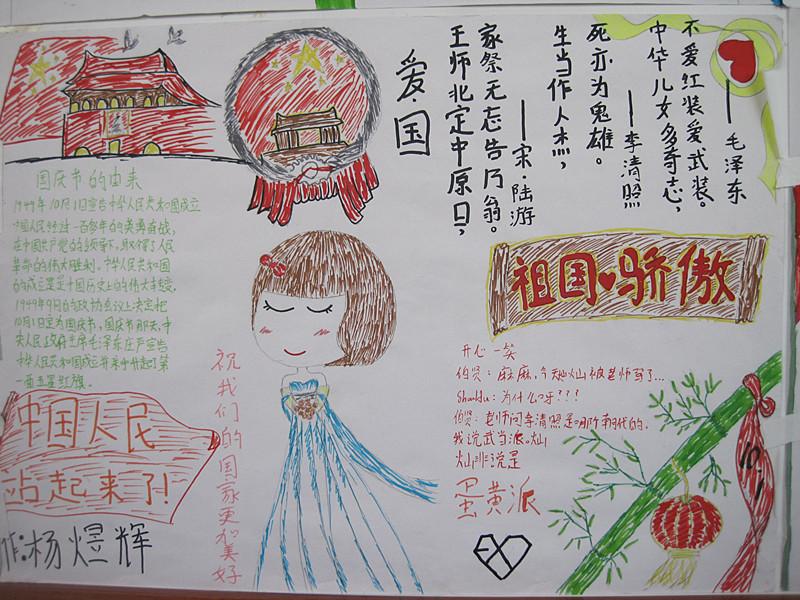 爱·国
王师北定中原日，
家祭无忘告乃翁。
——宋·陆游
生当作人杰，
死亦为鬼雄。
——李清照
中华儿女多奇志，
不爱红装爱武装。
——毛泽东
国庆节的由来
1949年10月1日宣告中华人民共和国成立
中国人民经过一百多年的英勇奋战，
在中国共产党的领导下，取得了人民
革命的伟大胜利。中华人民共和国
的成立是中国历史上的伟大转变。
1949年9月的政协会议上决定把
10月1日定为国庆节，国庆节那天，中
央人民政府主席毛泽东庄严宣告
中华人民共和国成立并亲手升起了第
一面五星红旗。
中国人民
站起来了!
作:杨煜辉
祝我们的国家更加美好
祖国骄傲
开心一笑
伯贤：麻麻，今天灿灿被老师骂了...
为什么呀？？？
伯贤：老师问李清照是哪个朝代的。
我说武当派。灿
灿非说是
蛋黄派
EXO
10.1